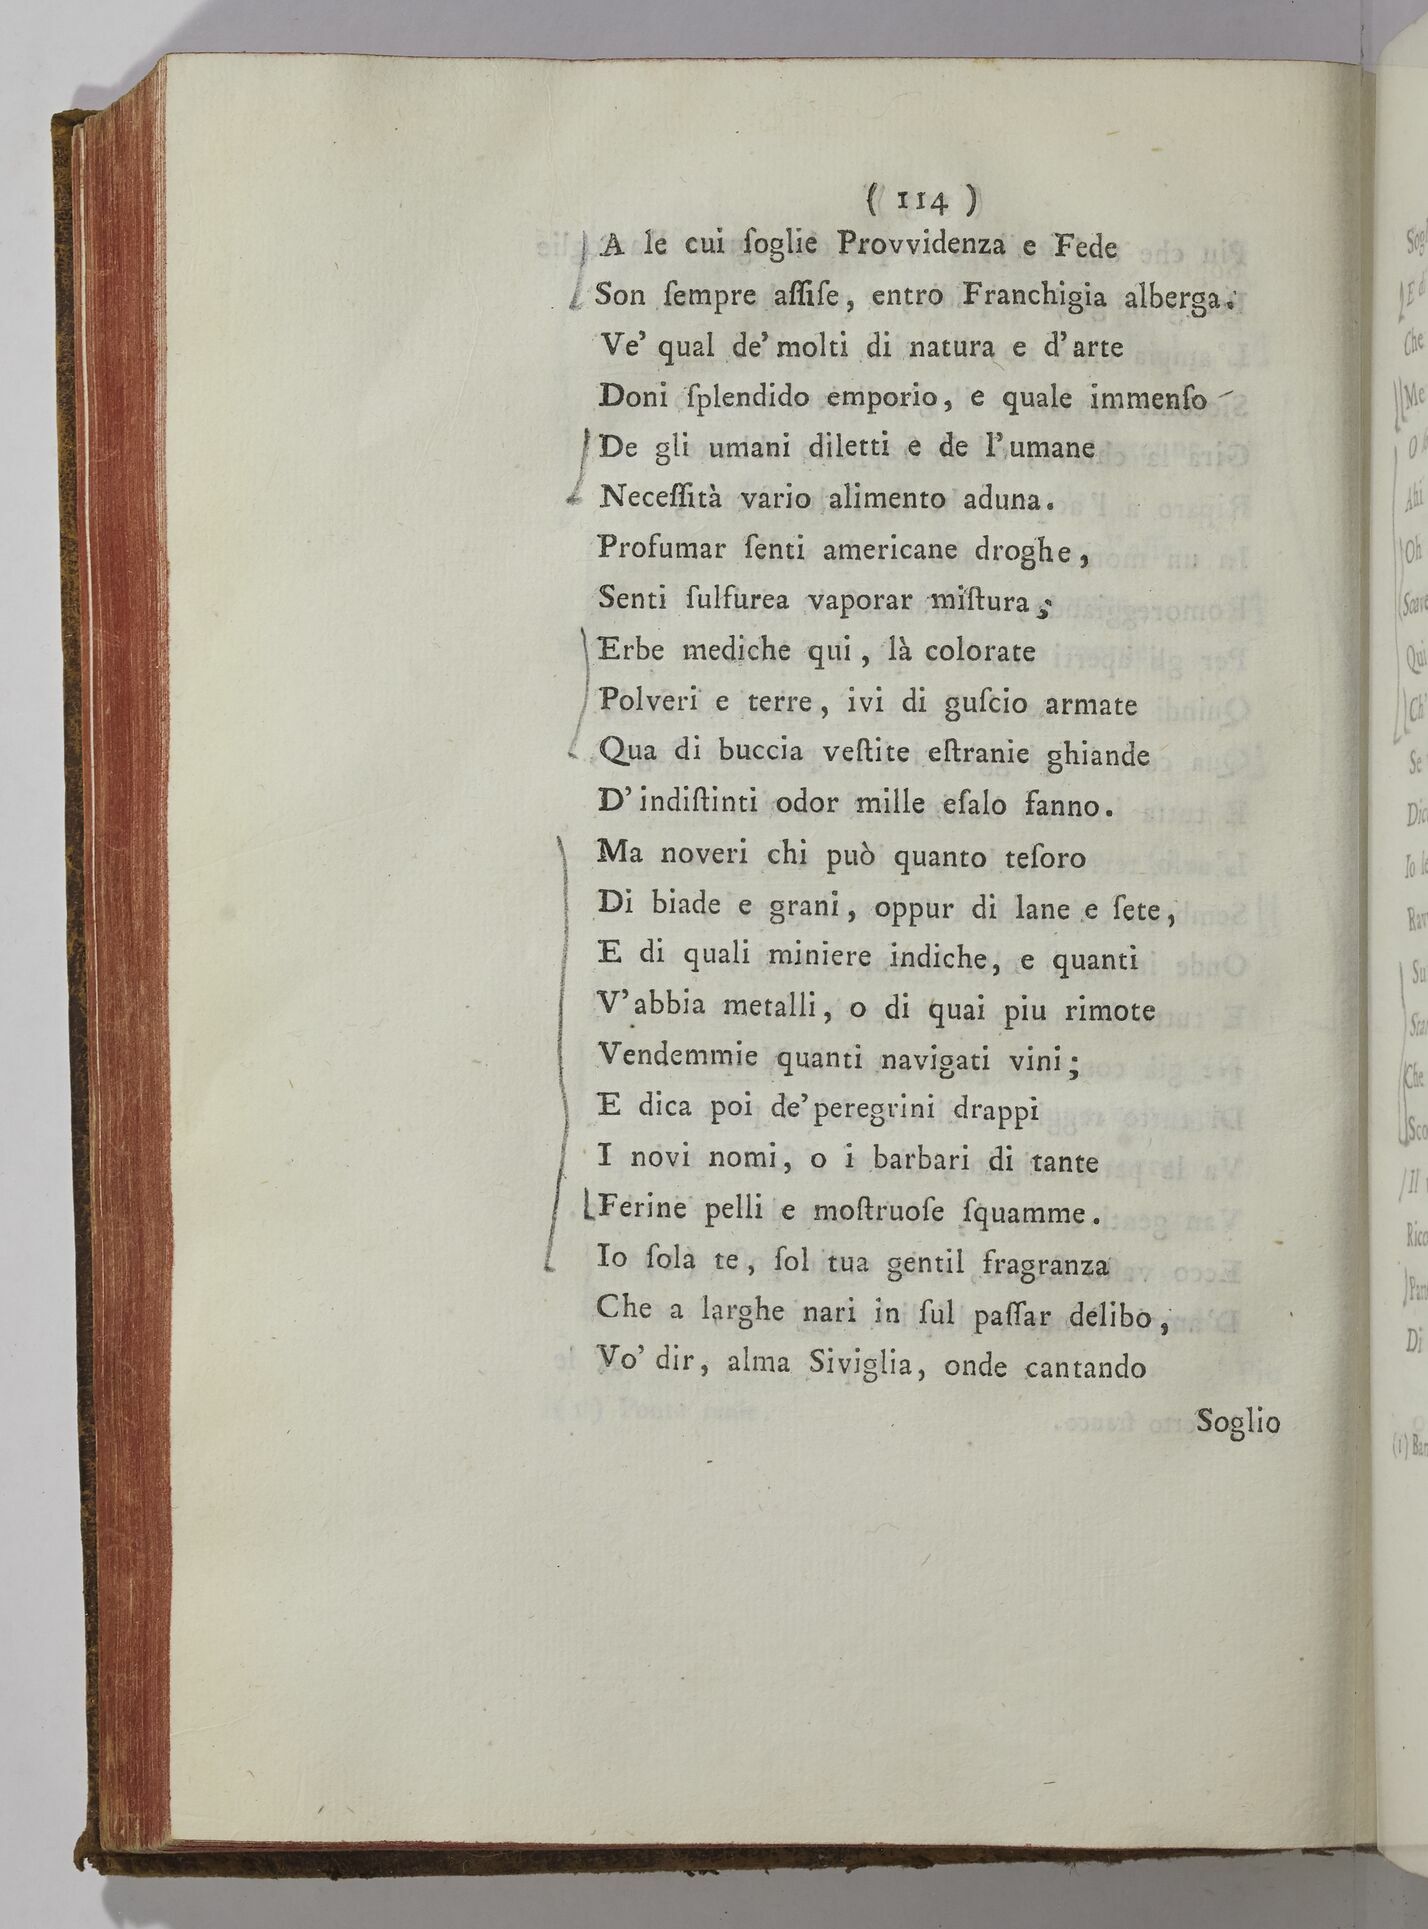 ( 114 )
A le cui ſoglie Provvidenza e Fede
Son ſempre aſſiſe, entro Franchigia alberga.
Ve' qual de' molti di natura e d' arte
Doni ſplendido emporio, e quale immenſo
De gli umani diletti e de l' umane
Neceſſità vario alimento aduna.
Profumar ſenti americane droghe,
Senti ſulfurea vaporar miſtura;
Erbe mediche qui, là colorate
Polveri e terre, ivi di guſcio armate
Qua di buccia veſtite eſtranie ghiande
D' indiſtinti odor mille eſalo fanno.
Ma noveri chi può quanto teſoro
Di biade e grani, oppur di lane e ſete,
E di quali miniere indiche, e quanti
V' abbia metalli, o di quai piu rimote
Vendemmie quanti navigati vini;
E dica poi de' peregrini drappi
I novi nomi, o i barbari di tante
Ferine pelli e moſtruoſe ſquamme.
Io ſola te, ſol tua gentil fragranza
Che a larghe nari in ſul paſſar delibo,
Vo' dir, alma Siviglia, onde cantando
Soglio